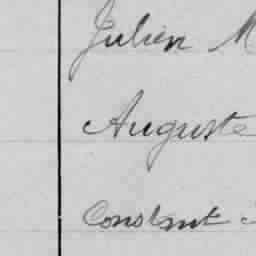 Julien M
Auguste
Constant